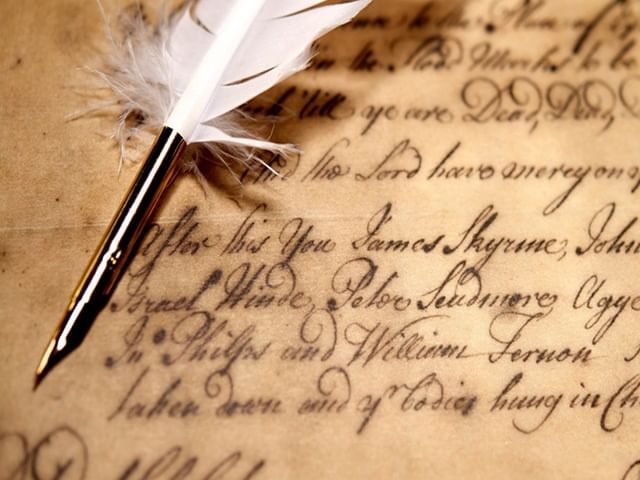 to the Place of
in the Flood Marks to be
'till ye are Dead, Dead,
And the Lord have mercy on y
After this You James Skyrme, John
Israel Hinde, Peter Scudmore, Agge
Jno Philps and William Fernon
taken down and yr bodies hung in Ch